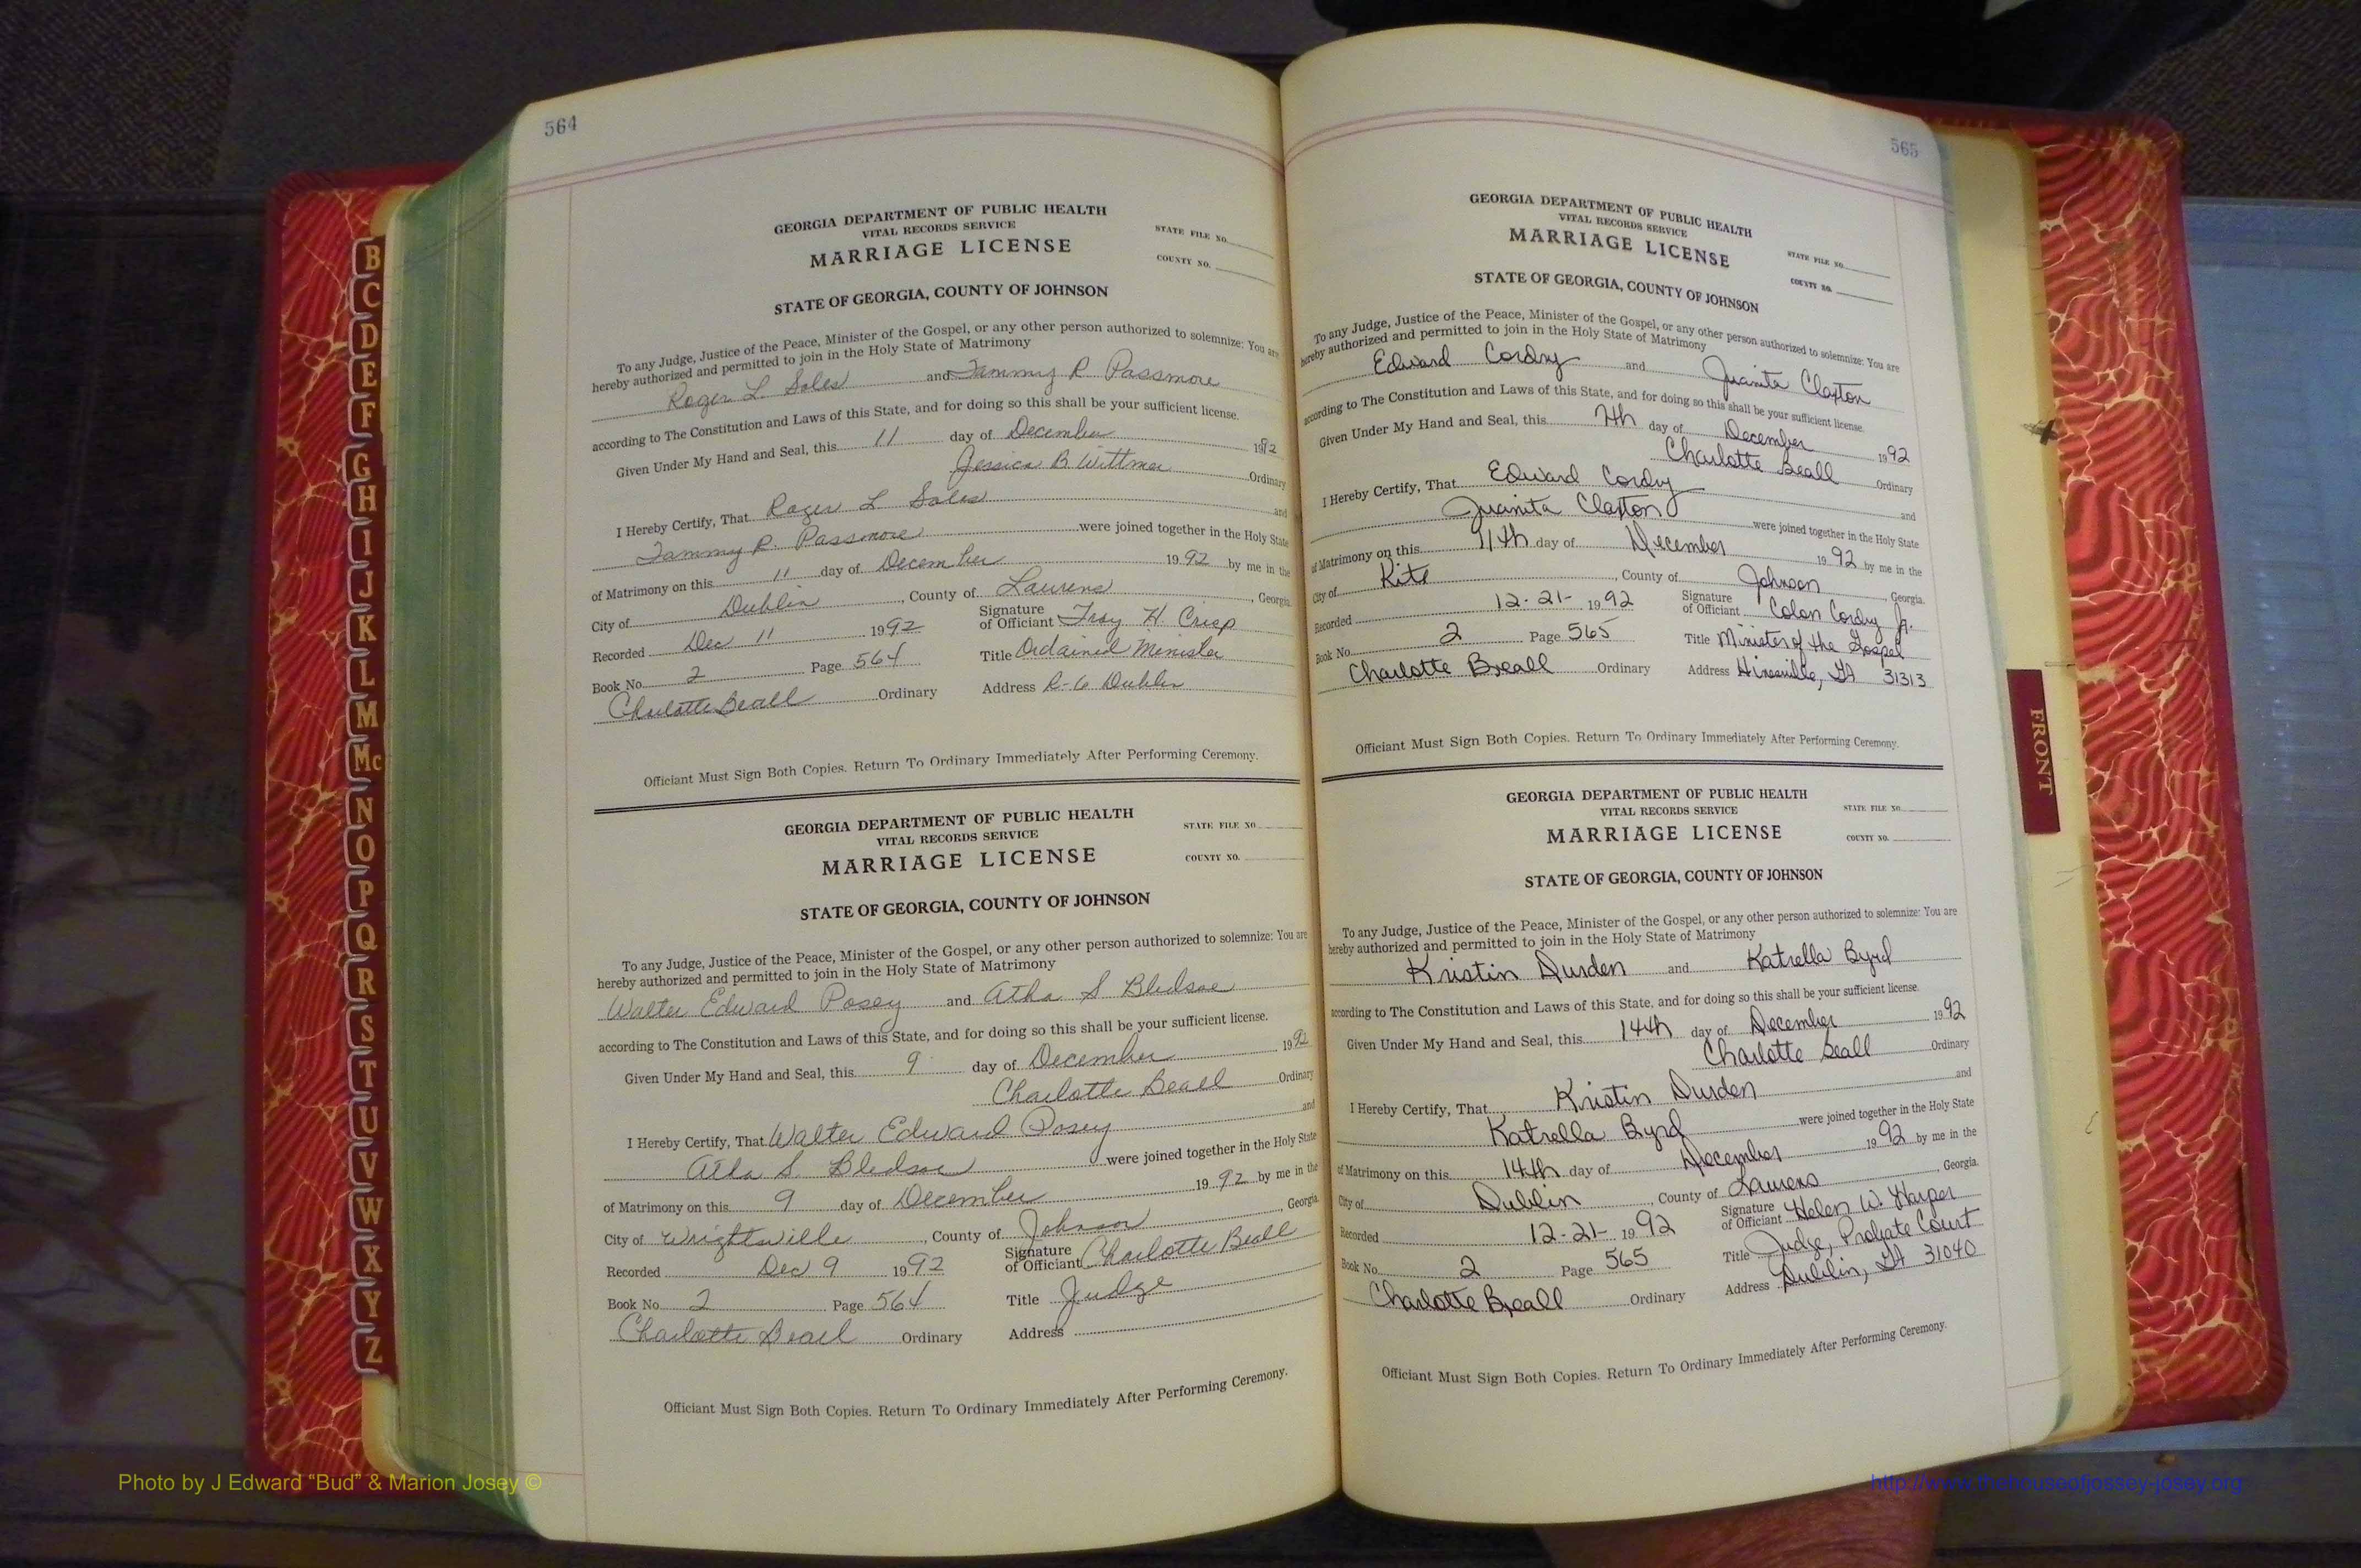 564
GEORGIA DEPARTMENT OF PUBLIC HEALTH
VITAL RECORDS SERVICE
MARRIAGE LICENSE
STATE FILE NO.
COUNTY NO.
STATE OF GEORGIA, COUNTY OF JOHNSON
To any Judge, Justice of the Peace, Minister of the Gospel, or any other person authorized to solemnize: You are
hereby authorized and permitted to join in the Holy State of Matrimony
Roger L. Soles and Tammy R Passmore
according to The Constitution and Laws of this State, and for doing so this shall be your sufficient license.
Given Under My Hand and Seal, this 11 day of December 1992
Jessica B Wittmer Ordinary
I Hereby Certify, That Roger L Soles and
Tammy R. Passmore were joined together in the Holy State
of Matrimony on this 11 day of December 1992 by me in the
City of Dublin, County of Laurens, Georgia
Recorded Dec 11 1992 Signature of Officiant Troy H. Crisp
Book No. 2 Page 564 Title Ordained Minister
Charlotte Beall Ordinary Address R-6 Dublin
Officiant Must Sign Both Copies. Return To Ordinary Immediately After Performing Ceremony.
GEORGIA DEPARTMENT OF PUBLIC HEALTH
VITAL RECORDS SERVICE
MARRIAGE LICENSE
STATE FILE NO
COUNTY NO.
STATE OF GEORGIA, COUNTY OF JOHNSON
To any Judge, Justice of the Peace, Minister of the Gospel, or any other person authorized to solemnize: You are
hereby authorized and permitted to join in the Holy State of Matrimony
Walter Edward Posey and Atha S Bledsoe
according to The Constitution and Laws of this State, and for doing so this shall be your sufficient license.
Given Under My Hand and Seal, this 9 day of December 1992
Charlotte Beall Ordinary
I Hereby Certify, That Walter Edward Posey and
Atha S. Bledsoe were joined together in the Holy State
of Matrimony on this 9 day of December 1992 by me in the
City of Wrightsville, County of Johnson, Georgia
Recorded Dec 9 1992 Signature of Officiant Charlotte Beall
Book No. 2 Page 564 Title Judge
Charlotte Beall Ordinary Address
Officiant Must Sign Both Copies. Return To Ordinary Immediately After Performing Ceremony.
565
GEORGIA DEPARTMENT OF PUBLIC HEALTH
VITAL RECORDS SERVICE
MARRIAGE LICENSE
STATE FILE NO.
COUNTY NO.
STATE OF GEORGIA, COUNTY OF JOHNSON
To any Judge, Justice of the Peace, Minister of the Gospel, or any other person authorized to solemnize: You are
hereby authorized and permitted to join in the Holy State of Matrimony
Edward Cordry and Juanita Claxton
according to The Constitution and Laws of this State, and for doing so this shall be your sufficient license.
Given Under My Hand and Seal, this 7th day of December 1992
Charlotte Beall Ordinary
I Hereby Certify, That Edward Cordry and
Juanita Claxton were joined together in the Holy State
of Matrimony on this 11th day of December 1992 by me in the
City of Kite, County of Johnson, Georgia.
Recorded 12-21- 1992 Signature of Officiant Colon Cordry Jr.
Book No. 2 Page 565 Title Minister of the Gospel
Charlotte Beall Ordinary Address Hinesville, GA 31313
Officiant Must Sign Both Copies. Return To Ordinary Immediately After Performing Ceremony.
GEORGIA DEPARTMENT OF PUBLIC HEALTH
VITAL RECORDS SERVICE
MARRIAGE LICENSE
STATE FILE NO
COUNTY NO.
STATE OF GEORGIA, COUNTY OF JOHNSON
To any Judge, Justice of the Peace, Minister of the Gospel, or any other person authorized to solemnize: You are
hereby authorized and permitted to join in the Holy State of Matrimony
Kristin Durden and Katrella Byrd
according to The Constitution and Laws of this State, and for doing so this shall be your sufficient license.
Given Under My Hand and Seal, this 14th day of December 1992
Charlotte Beall Ordinary
I Hereby Certify, That Kristin Durden and
Katrella Byrd were joined together in the Holy State
of Matrimony on this 14th day of December 1992 by me in the
City of Dublin, County of Laurens, Georgia.
Recorded 12-21- 1992 Signature of Officiant Helen W. Harper
Book No. 2 Page 565 Title Judge, Probate Court
Charlotte Beall Ordinary Address Dublin, GA 31040
Officiant Must Sign Both Copies. Return To Ordinary Immediately After Performing Ceremony.
B
C
D
E
F
G
H
I
J
K
L
M
Mc
N
O
P
Q
R
S
T
U
V
W
X
Y
Z
FRONT
Photo by J Edward “Bud” & Marion Josey ©
http://www.thehouseofjossey-josey.org